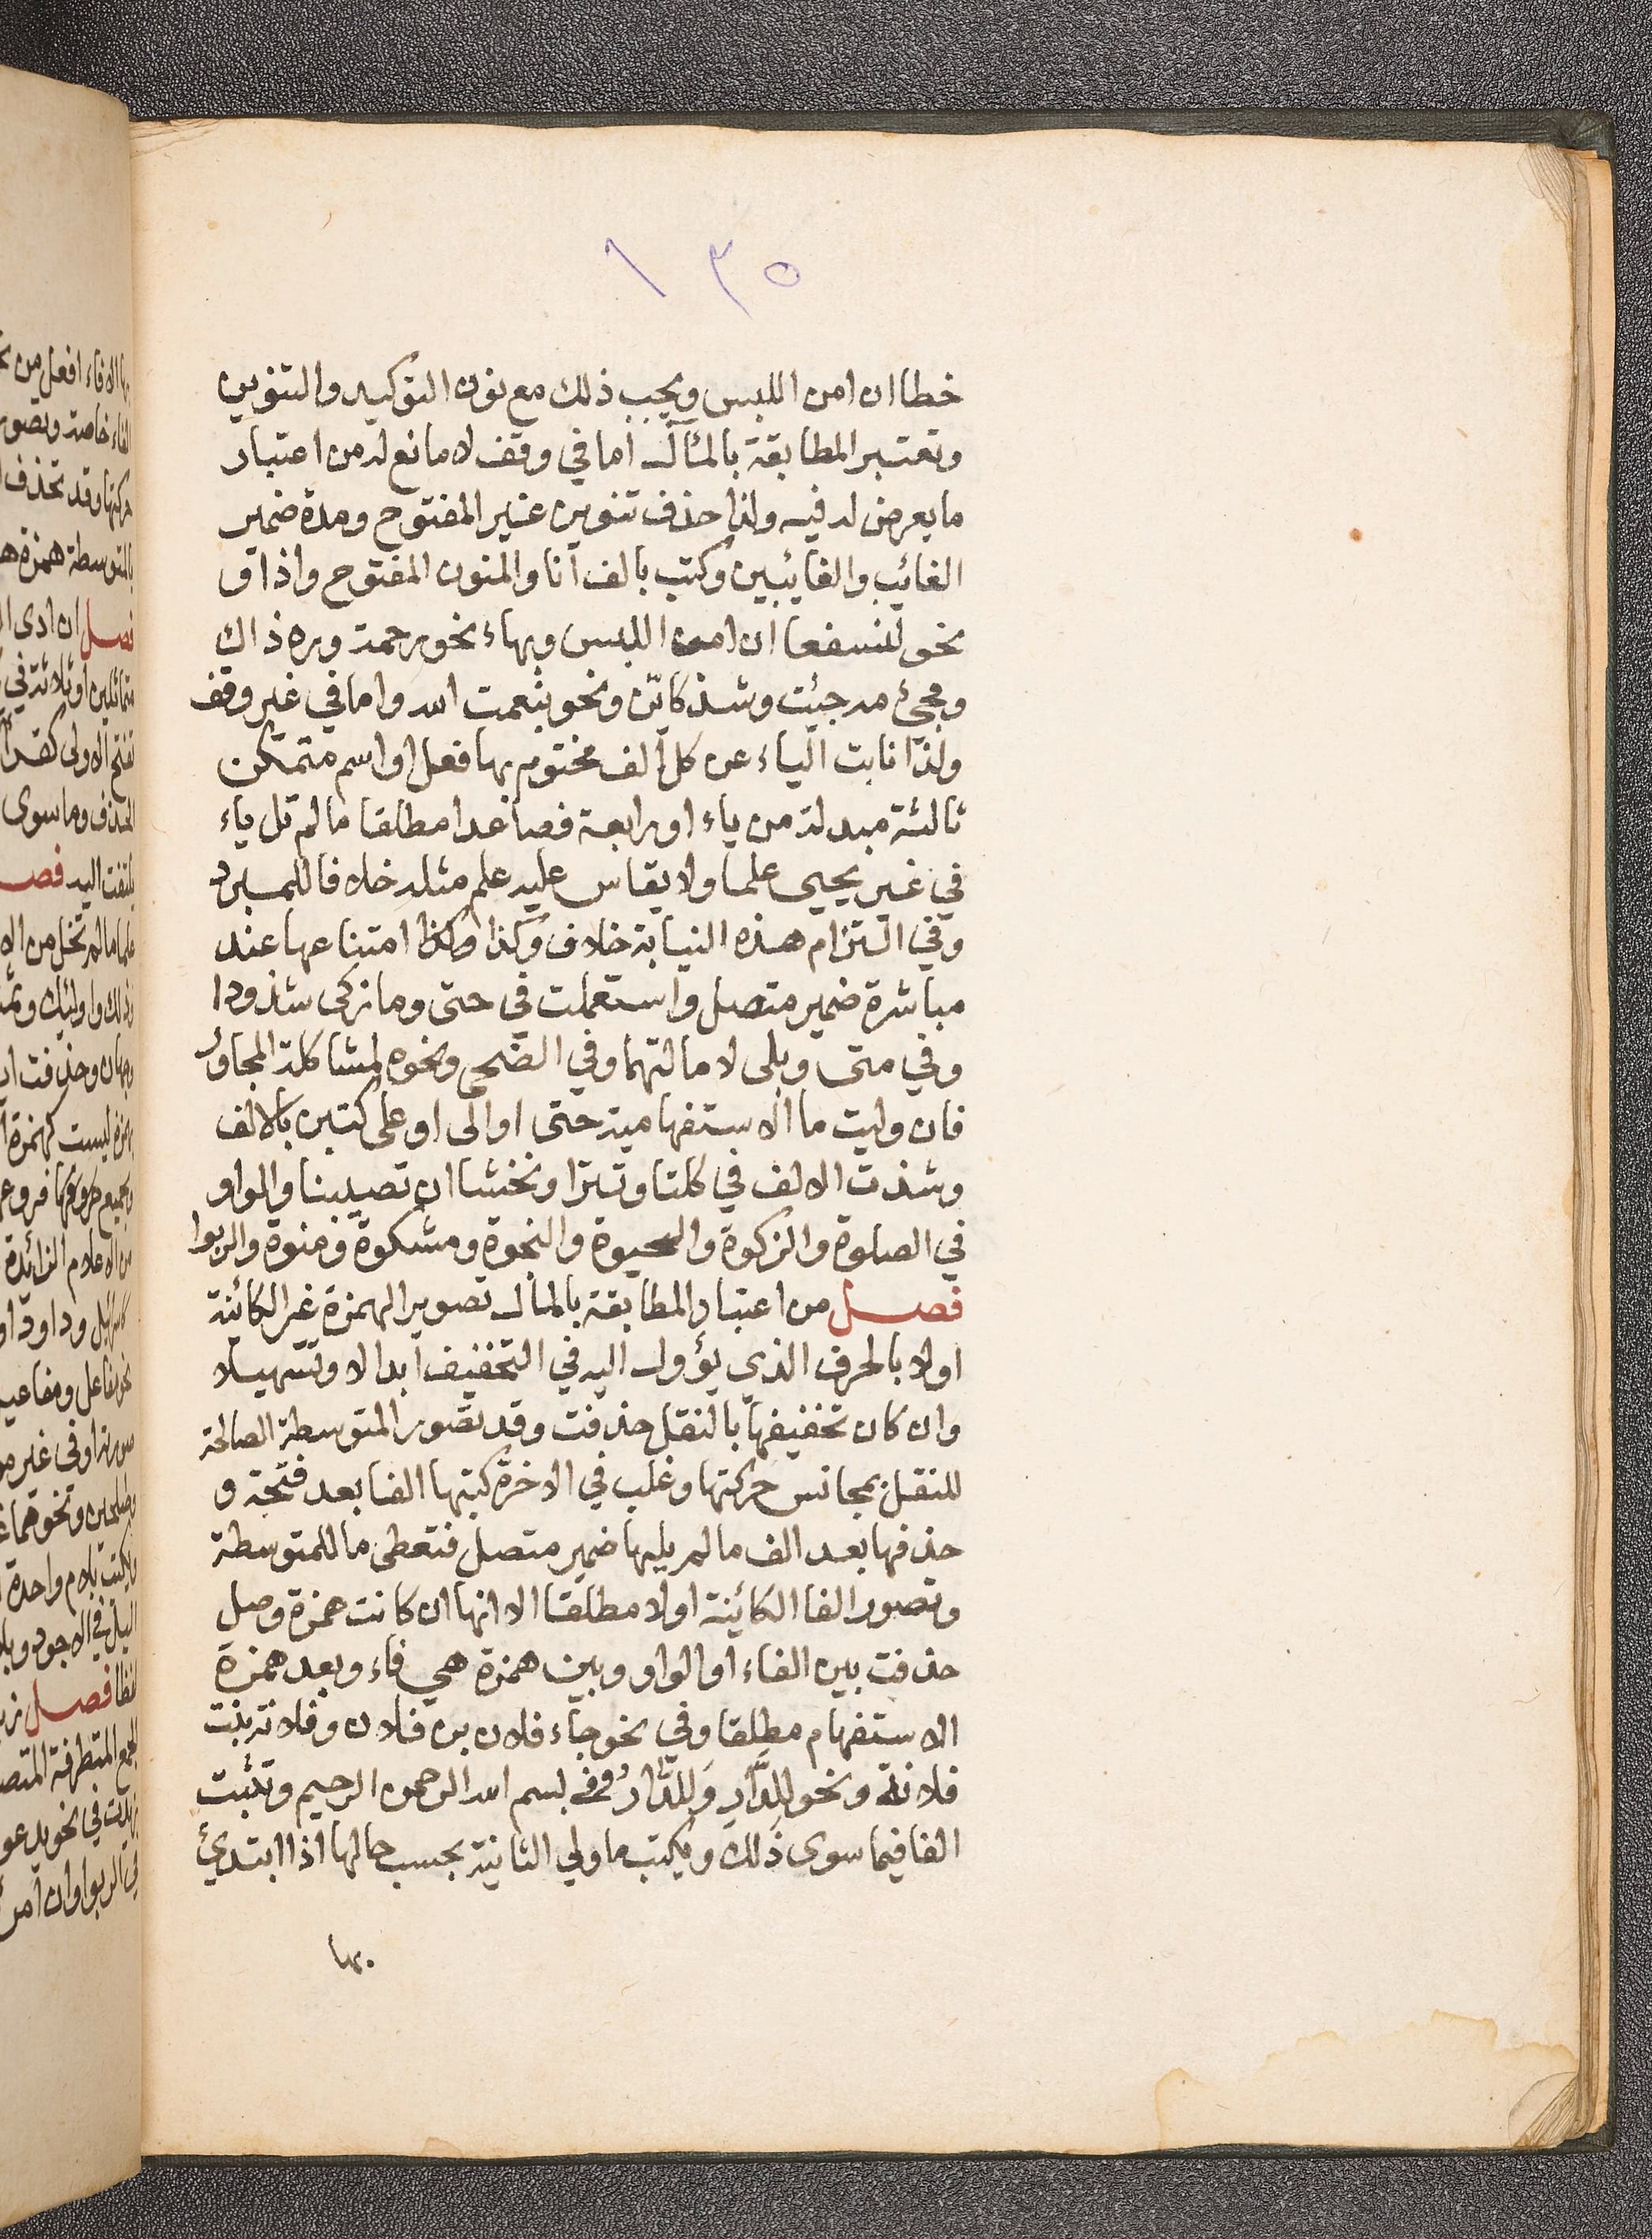 ١٣٥
خطا ان امن اللبس ويجب ذلك مع نون التوكيد والتنوين
وتعتبر المطابقة بالمآل اما في وقف لا مانع له من اعتبار
ما يعرض له فيه ولذا حذف تنوين غير المفتوح ومدة ضمير
الغائب والغايبين وكتب بالف انا والمنون المفتوح واذا و
نحو لنسفعا ان امن اللبس وبهاء نحو رحمة وره ذاك
ومجئ مه جئت وشذ كاين ونحو بنعمت الله واما في غير وقف
ولذا نابت الياء عن كل الف مختوم بها فعل او اسم متمكن
ثالثة مبدلة من ياء او رابعة فصاعدا مطلقا ما لم تل ياء
في غير يحيى علما ولا يقاس عليه علم مثله خلافا للمبرد
وفي التزام هذه النيابة خلاف وكذا وكذا امتناعها عند
مباشرة ضمير متصل واستعملت في حتى وما زكى شذوذا
وفي متى وبلى لامالتهما وفي الضحى ونحوه لمشاكلة المجاور
فان وليت ما الاستفهامية حتى او الى او على كتبن بالالف
وشذت الالف في كلتا وتترا ونخشا ان تصيبنا والواو
في الصلوة والزكوة والحيوة والنجوة ومشكوة ومنوة والربوا
فصل من اعتبار المطابقة بالمآل تصوير الهمزة غير الكائنة
اولا بالحرف الذي يؤول اليه في التخفيف ابدالا وتسهيلا
وان كان تخفيفها بالنقل حذفت وقد تصور المتوسطة الصالحة
للنقل بمجانس حركتها وغلب في الاخرة كتبها الفا بعد فتحة و
حذفها بعد الف ما لم يليها ضمير متصل فتعطى ما للمتوسطة
وتصور الفا الكائنة اولا مطلقا الا انها ان كانت همزة وصل
حذفت بين الفاء او الواو وبين همزة هي فاء وبعد همزة
الاستفهام مطلقا وفي نحو جاء فلان بن فلان وفلانة بنت
فلانة ونحو للدار وللدار وفي بسم الله الرحمن الرحيم وتثبت
الفا فيما سوى ذلك ويكتب ما ولي الثانية بحسب حالها اذا ابتدئ
بها